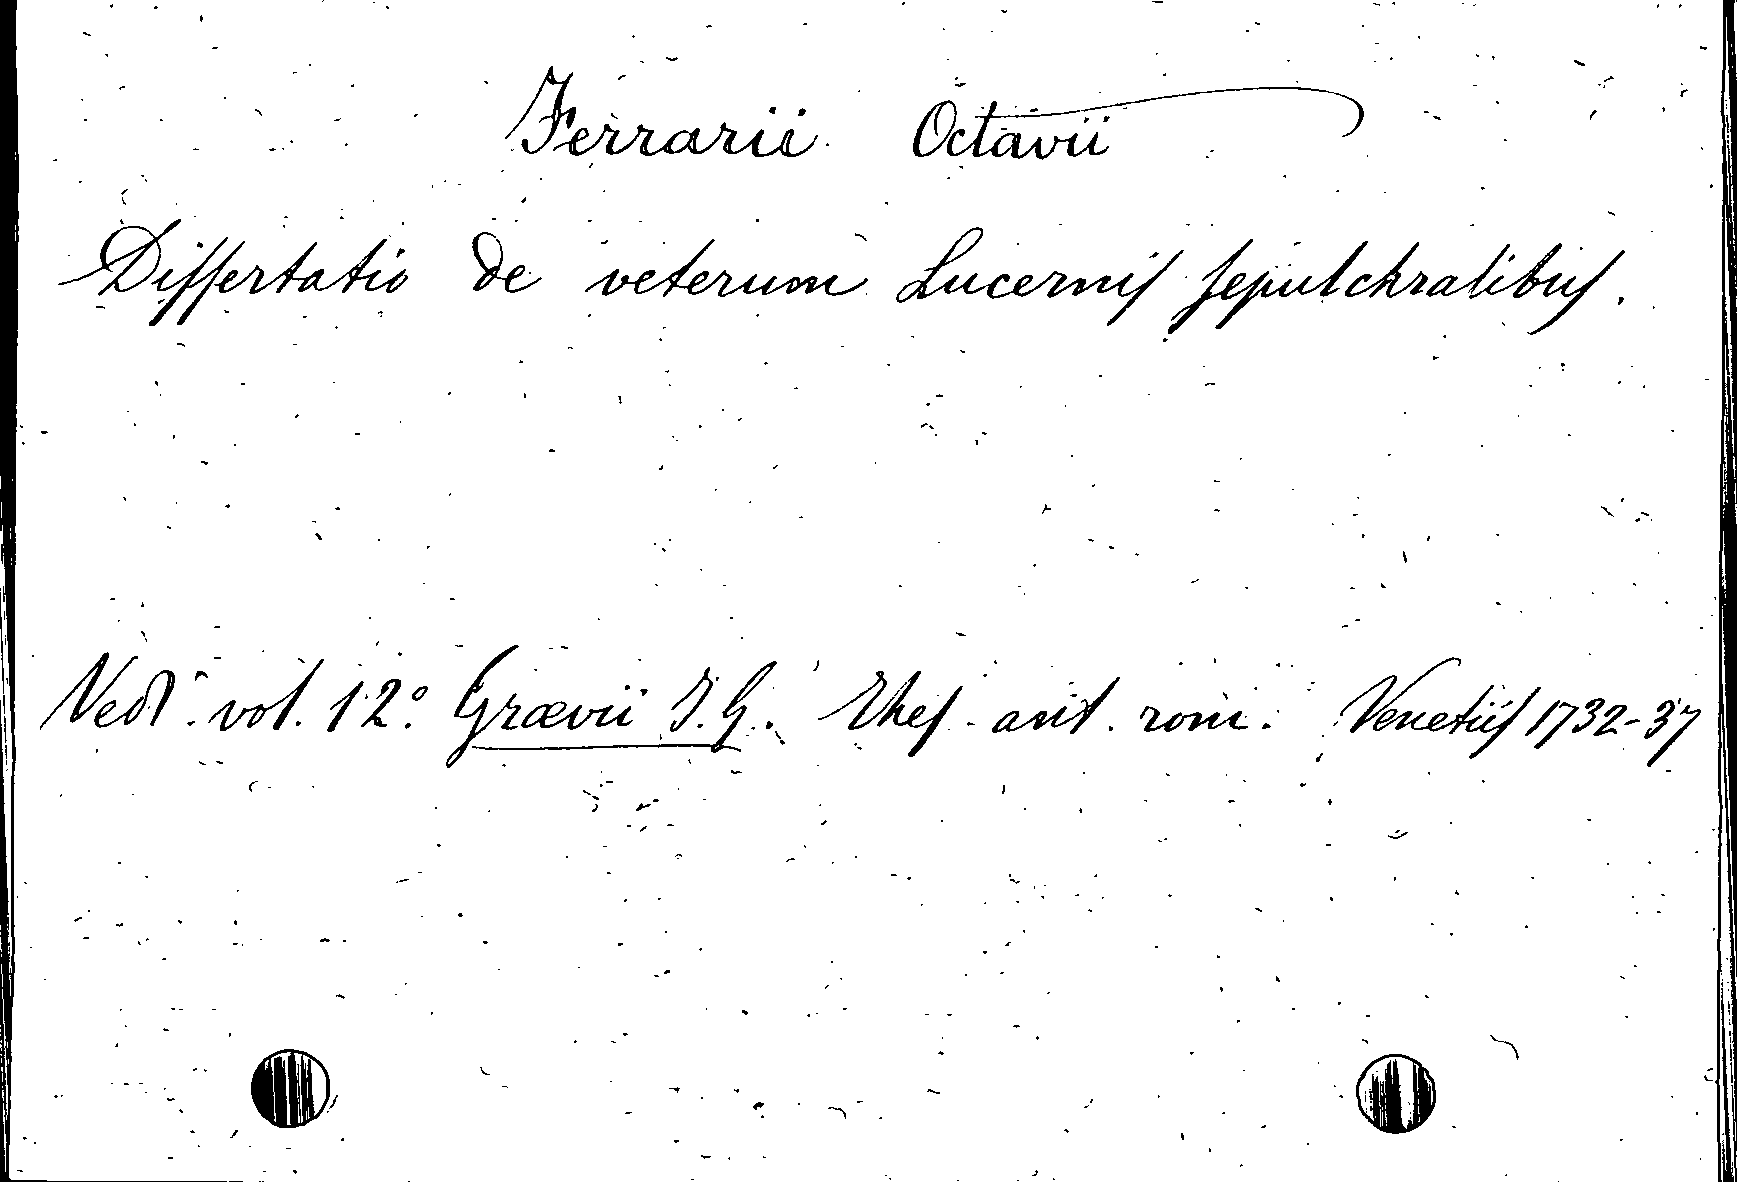 Ferrarii Octavii
Dissertatio de veterum Lucernis sepulchralibus.
Vedi: vol. 12.º Grævii J. G. Thes. ant. rom. Venetiis 1732-37